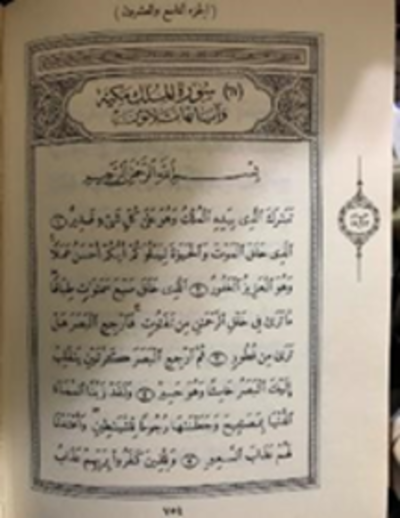 (الجزء التاسع والعشرون)
(٦٧) سورة الملك مكية
وآياتها ثلاثون
بسم الله الرحمن الرحيم
تبارك الذي بيده الملك وهو على كل شيء قدير ١
الذي خلق الموت والحيوة ليبلوكم أيكم أحسن عملا
وهو العزيز الغفور ٢ الذي خلق سبع سموات طباقا
ما ترى في خلق الرحمن من تفوت فارجع البصر هل
ترى من فطور ٣ ثم ارجع البصر كرتين ينقلب
إليك البصر خاسئا وهو حسير ٤ ولقد زينا السماء
الدنيا بمصبيح وجعلنها رجوما للشيطين وأعتدنا
لهم عذاب السعير ٥ وللذين كفروا بربهم عذاب
٧٥٤